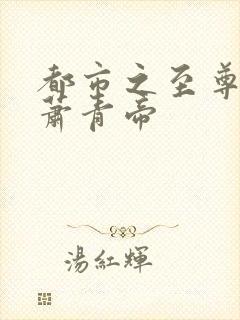 都市之至尊
蕭青帝
湯紅輝